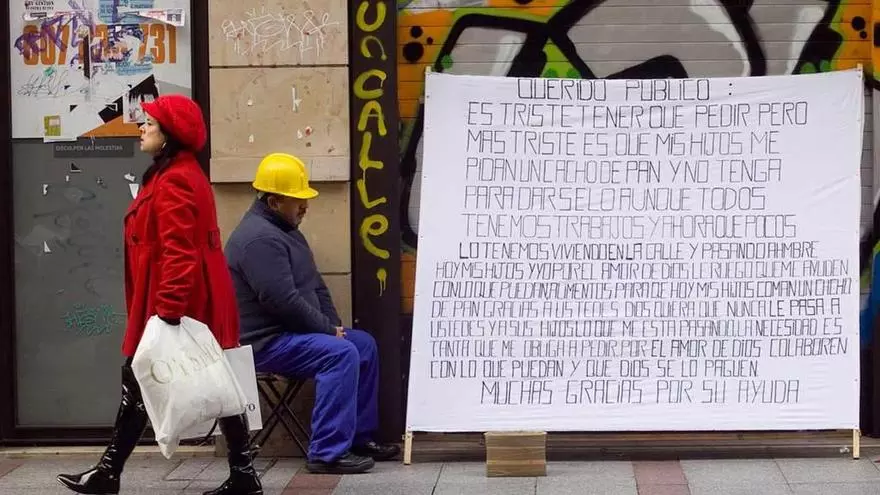 607 025 731
DISCULPEN LAS MOLESTIAS
QUERIDO PUBLICO :
ES TRISTE TENER QUE PEDIR PERO
MAS TRISTE ES QUE MIS HIJOS ME
PIDAN UN CACHO DE PAN Y NO TENGA
PARA DARSELO AUNQUE TODOS
TENEMOS TRABAJOS Y AHORA QUE POCOS
LO TENEMOS VIVIENDO EN LA CALLE Y PASANDO AHMBRE
HOY MIS HIJOS Y YO POR EL AMOR DE DIOS LE RUEGO QUE ME AYUDEN
CON LO QUE PUEDAN AUMENTOS PARA DE HOY MIS HIJOS COMAN UN CHACHO
DE PAN GRACIAS A USTEDES DIOS QUIERA QUE NUNCA LE PASA A
USTEDES Y A SUS HIJOS LO QUE ME ESTA PASANDO LA NECESIDAD ES
TANTA QUE ME OBLIGA A PEDIR POR EL AMOR DE DIOS COLABOREN
CON LO QUE PUEDAN Y QUE DIOS SE LO PAGUEN
MUCHAS GRACIAS POR SU AYUDA